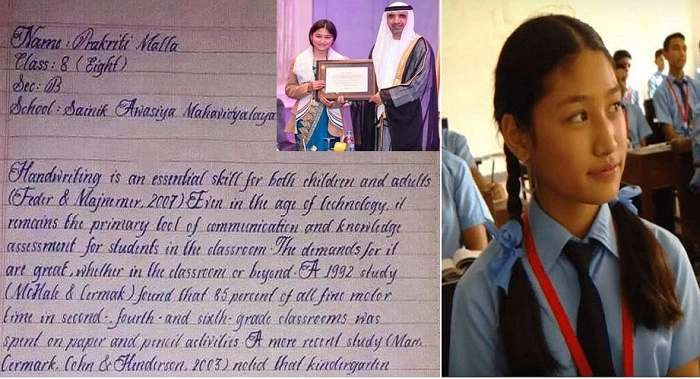 Name : Prakriti Malla
Class : 8 (Eight)
Sec : B
School : Sainik Awasiya Mahavidyalaya
Handwriting is an essential skill for both children and adults
(Feder & Majnemer, 2007) Even in the age of technology, it
remains the primary tool of communication and knowledge
assessment for students in the classroom The demands for it
are great, whether in the classroom or beyond. A 1992 study
(McHale & Cermak) found that 85 percent of all fine motor
time in second-, fourth- and sixth- grade classrooms was
spent on paper and pencil activities A more recent study (Marr,
Cermark, Cohn & Henderson, 2003) noted that kindergarten